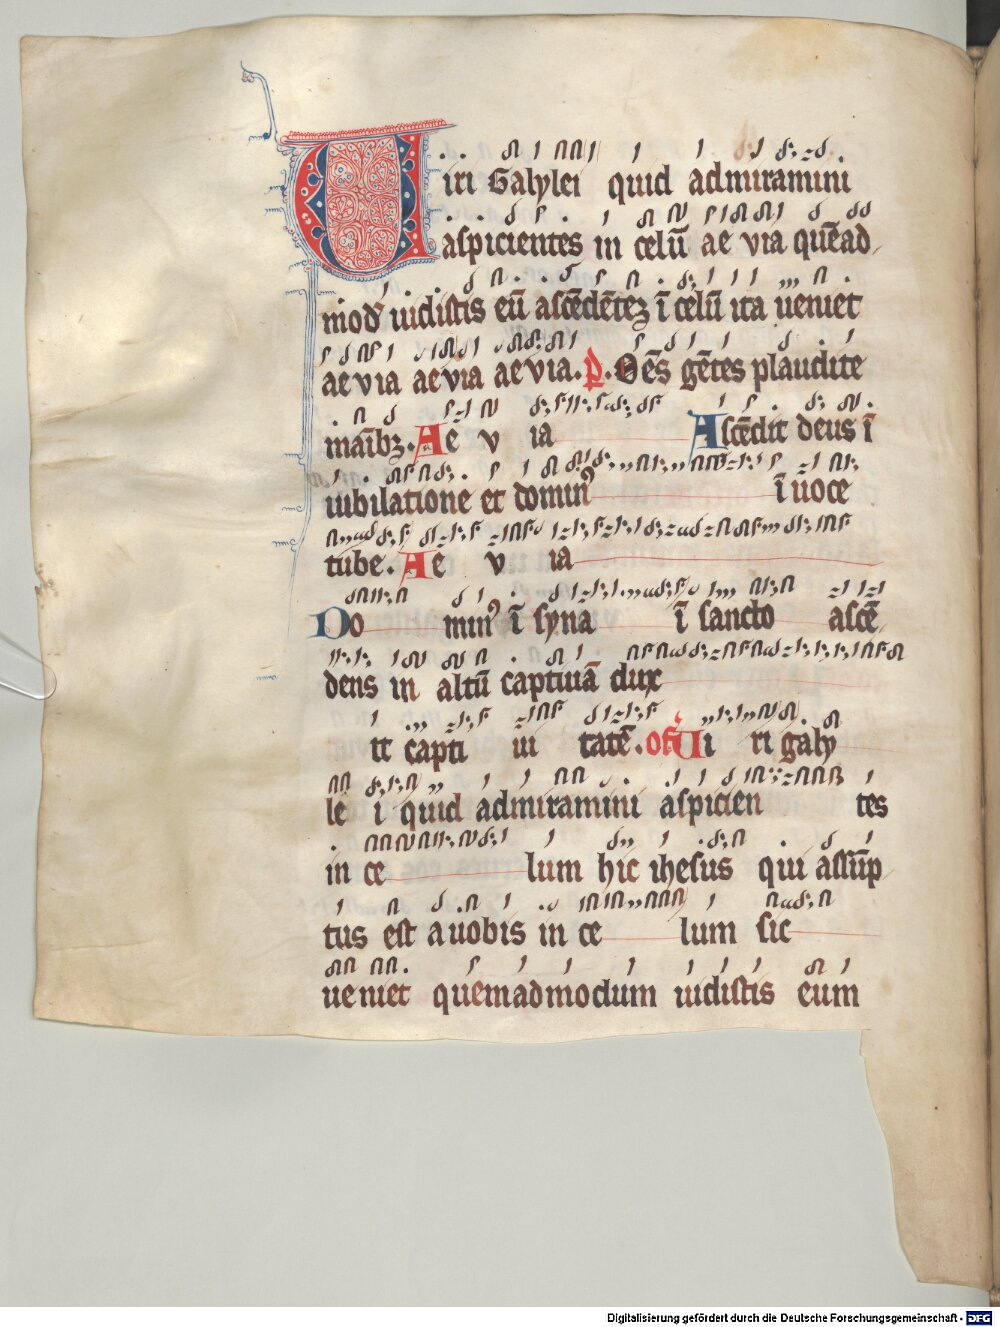 Uiri Galylei quid admiramini
aspicientes in celū ae via quēad
modͦ uidistis eū ascēdētez ī celū ita ueniet
aevia aevia aevia. P. Oēs gētes plaudite
maībz. Ae v ia Ascēdit deus ī
iubilatione et dominꝰ ī uoce
tube. Ae v ia
Do minꝰ ī syna ī sancto ascē
dens in altū captiuā dux
it capti ui tatē. Off Ui ri galy
le i quid admiramini aspicien tes
in ce lum hic ihesus qui assūp
tus est a uobis in ce lum sic
ueniet quemadmodum uidistis eum
Digitalisierung gefördert durch die Deutsche Forschungsgemeinschaft - DFG